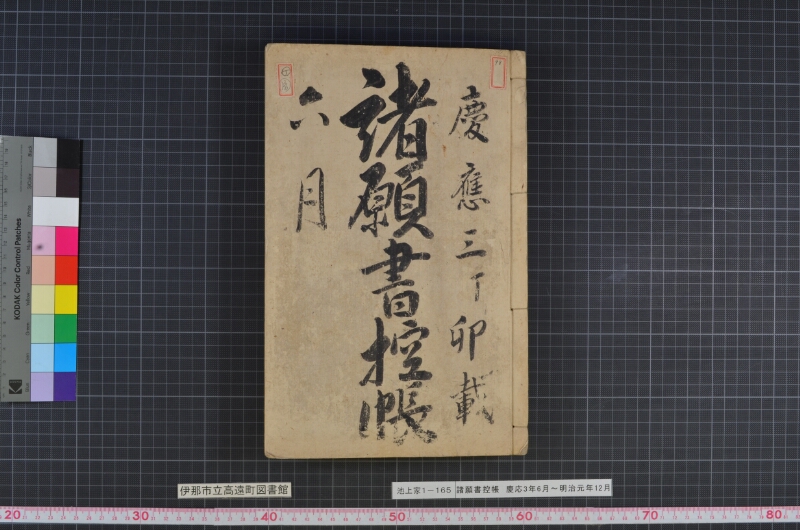 慶應三丁卯載
諸願書控帳
六月
伊那市立高遠町図書館
池上家1－165 諸願書控帳 慶応3年6月～明治元年12月
KODAK Color Control Patches
20 30 40 50 60 70 80